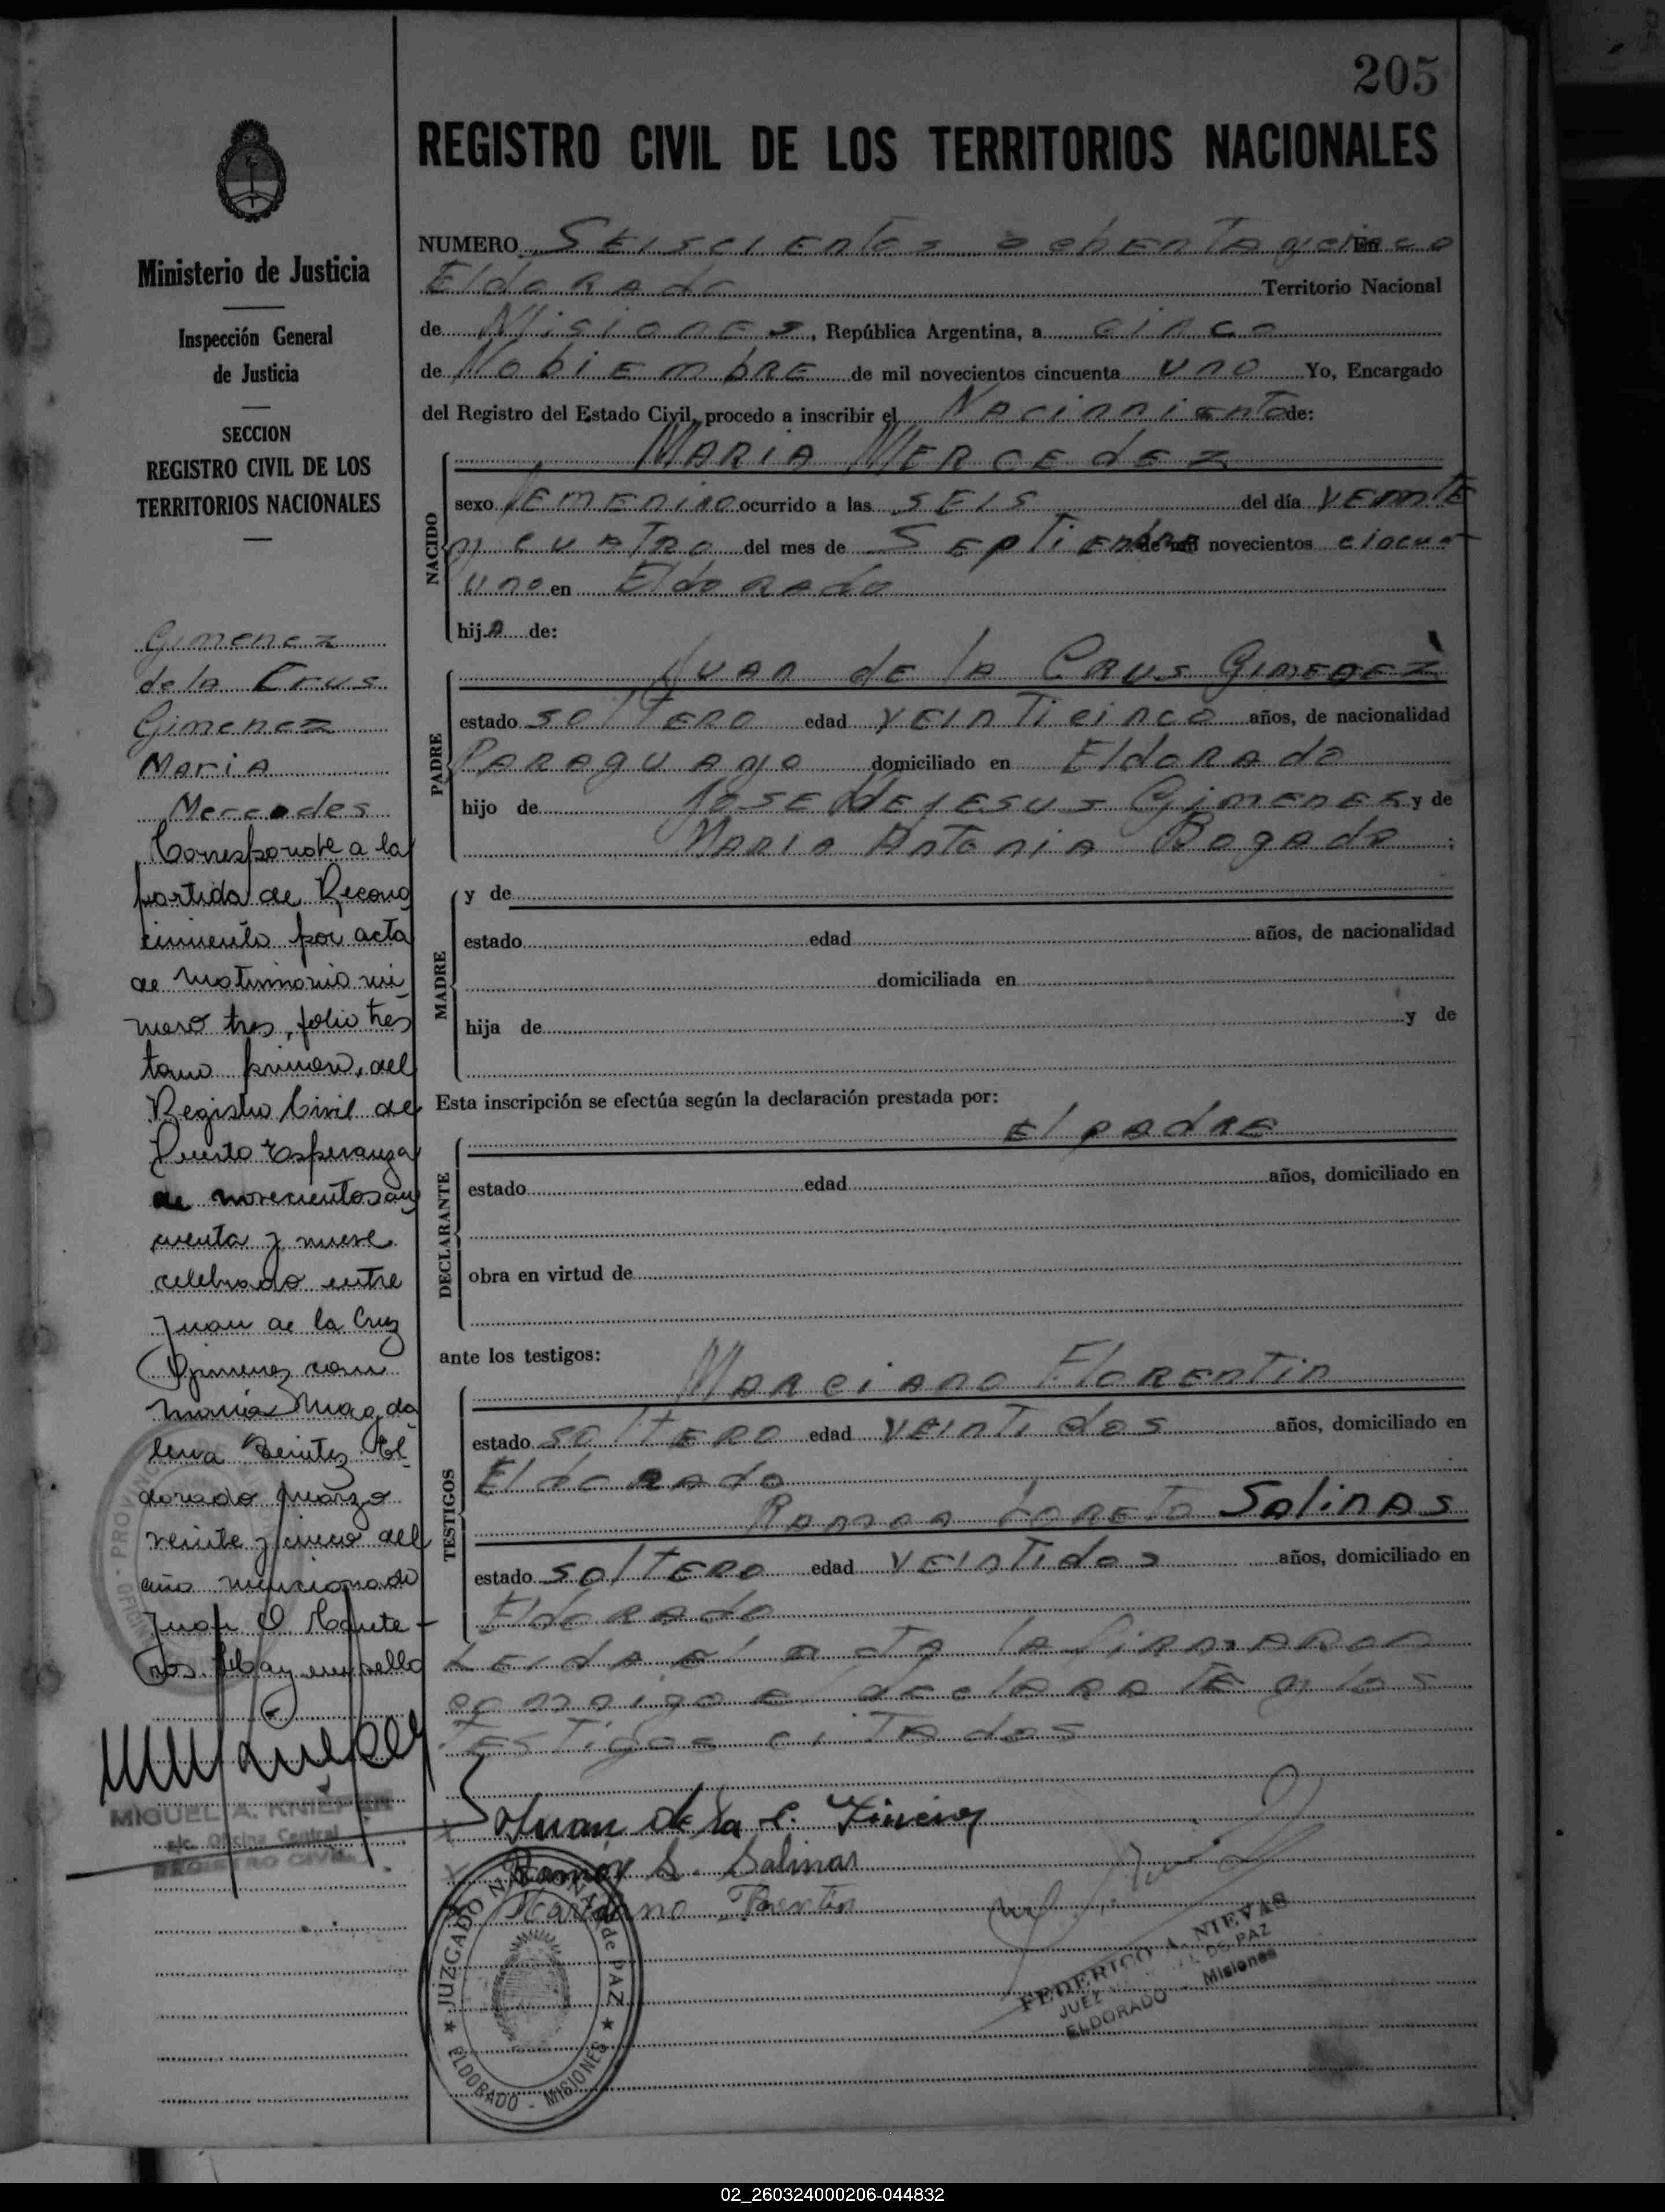 205
REGISTRO CIVIL DE LOS TERRITORIOS NACIONALES
Ministerio de Justicia
Inspección General
de Justicia
SECCION
REGISTRO CIVIL DE LOS
TERRITORIOS NACIONALES
Gimenez
de la Crus
Gimenez
Maria
Mercedes
Corresponde a la
partida de Recono
cimiento por acta
de Matrimonio nú
mero tres, folio tres
tomo primero, del
Registro Civil de
Puerto Esperanza
de novecientos cin
cuenta y nueve
celebrado entre
Juan de la Cruz
Gimenez con
Maria Magda
lena Benitez El
dorado Marzo
veinte y cinco del
año mencionado
Juan
Hay un sello
MIGUEL A. KNIEPER
e/c. Oficina Central
REGISTRO CIVIL
NUMERO Seiscientos ochenta y cinco En
Eldorado Territorio Nacional
de Misiones, República Argentina, a cinco
de Nobiembre de mil novecientos cincuenta uno Yo, Encargado
del Registro del Estado Civil, procedo a inscribir el Nacimiento de:
NACIDO
Maria Mercedez
sexo femenino ocurrido a las seis del día veinte
y cuatro del mes de Septiembre de mil novecientos cincuent
uno en Eldorado
hija de:
PADRE
Juan de la Crus Gimenez
estado soltero edad veinticinco años, de nacionalidad
Paraguayo domiciliado en Eldorado
hijo de Jose de Jesus Gimenez y de
Maria Antonia Bogado;
MADRE
y de
estado edad años, de nacionalidad
domiciliada en
hija de y de
Esta inscripción se efectúa según la declaración prestada por:
DECLARANTE
el padre
estado edad años, domiciliado en
obra en virtud de
ante los testigos:
TESTIGOS
Marciano Florentin
estado soltero edad veintidos años, domiciliado en
Eldorado
Ramon Loreto Salinas
estado soltero edad veintidos años, domiciliado en
Eldorado
Leida el acta la firmaron
conmigo el declarate y los
testigos citados
Juan de la C. Jimenez
Ramon L. Salinas
Marciano Florentin
JUZGADO NACIONAL de PAZ
ELDORADO - MISIONES
FEDERICO A. NIEVAS
JUEZ DE PAZ
ELDORADO - Misiones
02_260324000206-044832